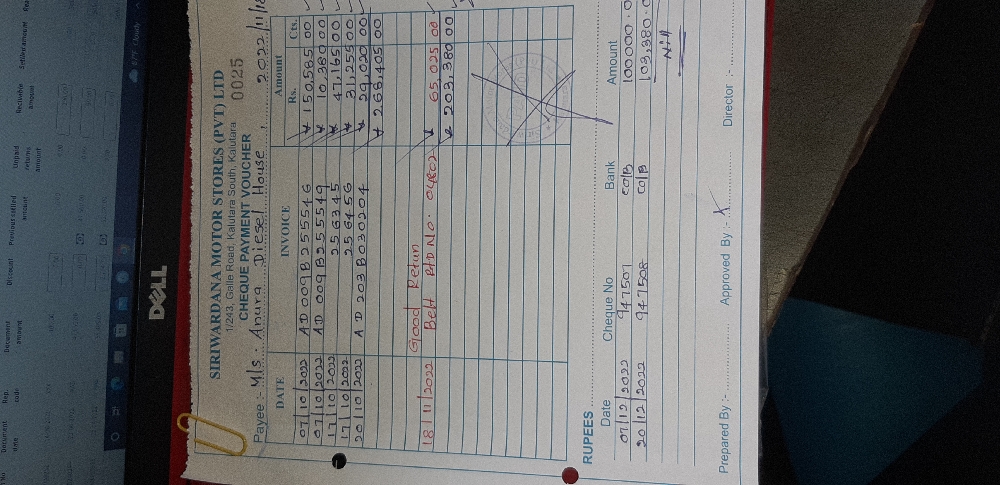 SIRIWARDANA MOTOR STORES (PVT) LTD
1/243, Galle Road, Kalutara South, Kalutara
CHEQUE PAYMENT VOUCHER 0025
Payee :- M/s. Anura Diesel House, 2022/11/18
DATE INVOICE Amount
Rs. Cts.
07/10/2022 AD 009B255546 150,585 00
07/10/2022 AD 009B255549 10,380 00
17/10/2022 256345 41,165 00
17/10/2022 256456 31,255 00
20/10/2022 AD 203B030204 29,020 00
268,405 00
18/11/2022 Good Retun
Belt RTD No. 04802 65,025 00
203,380 00
RUPEES
Date Cheque No Bank Amount
07/12/2022 947507 COB 100000.0
20/12/2022 947508 COB 103,380.0
Nil
Prepared By :- Approved By :- Director :-
DELL